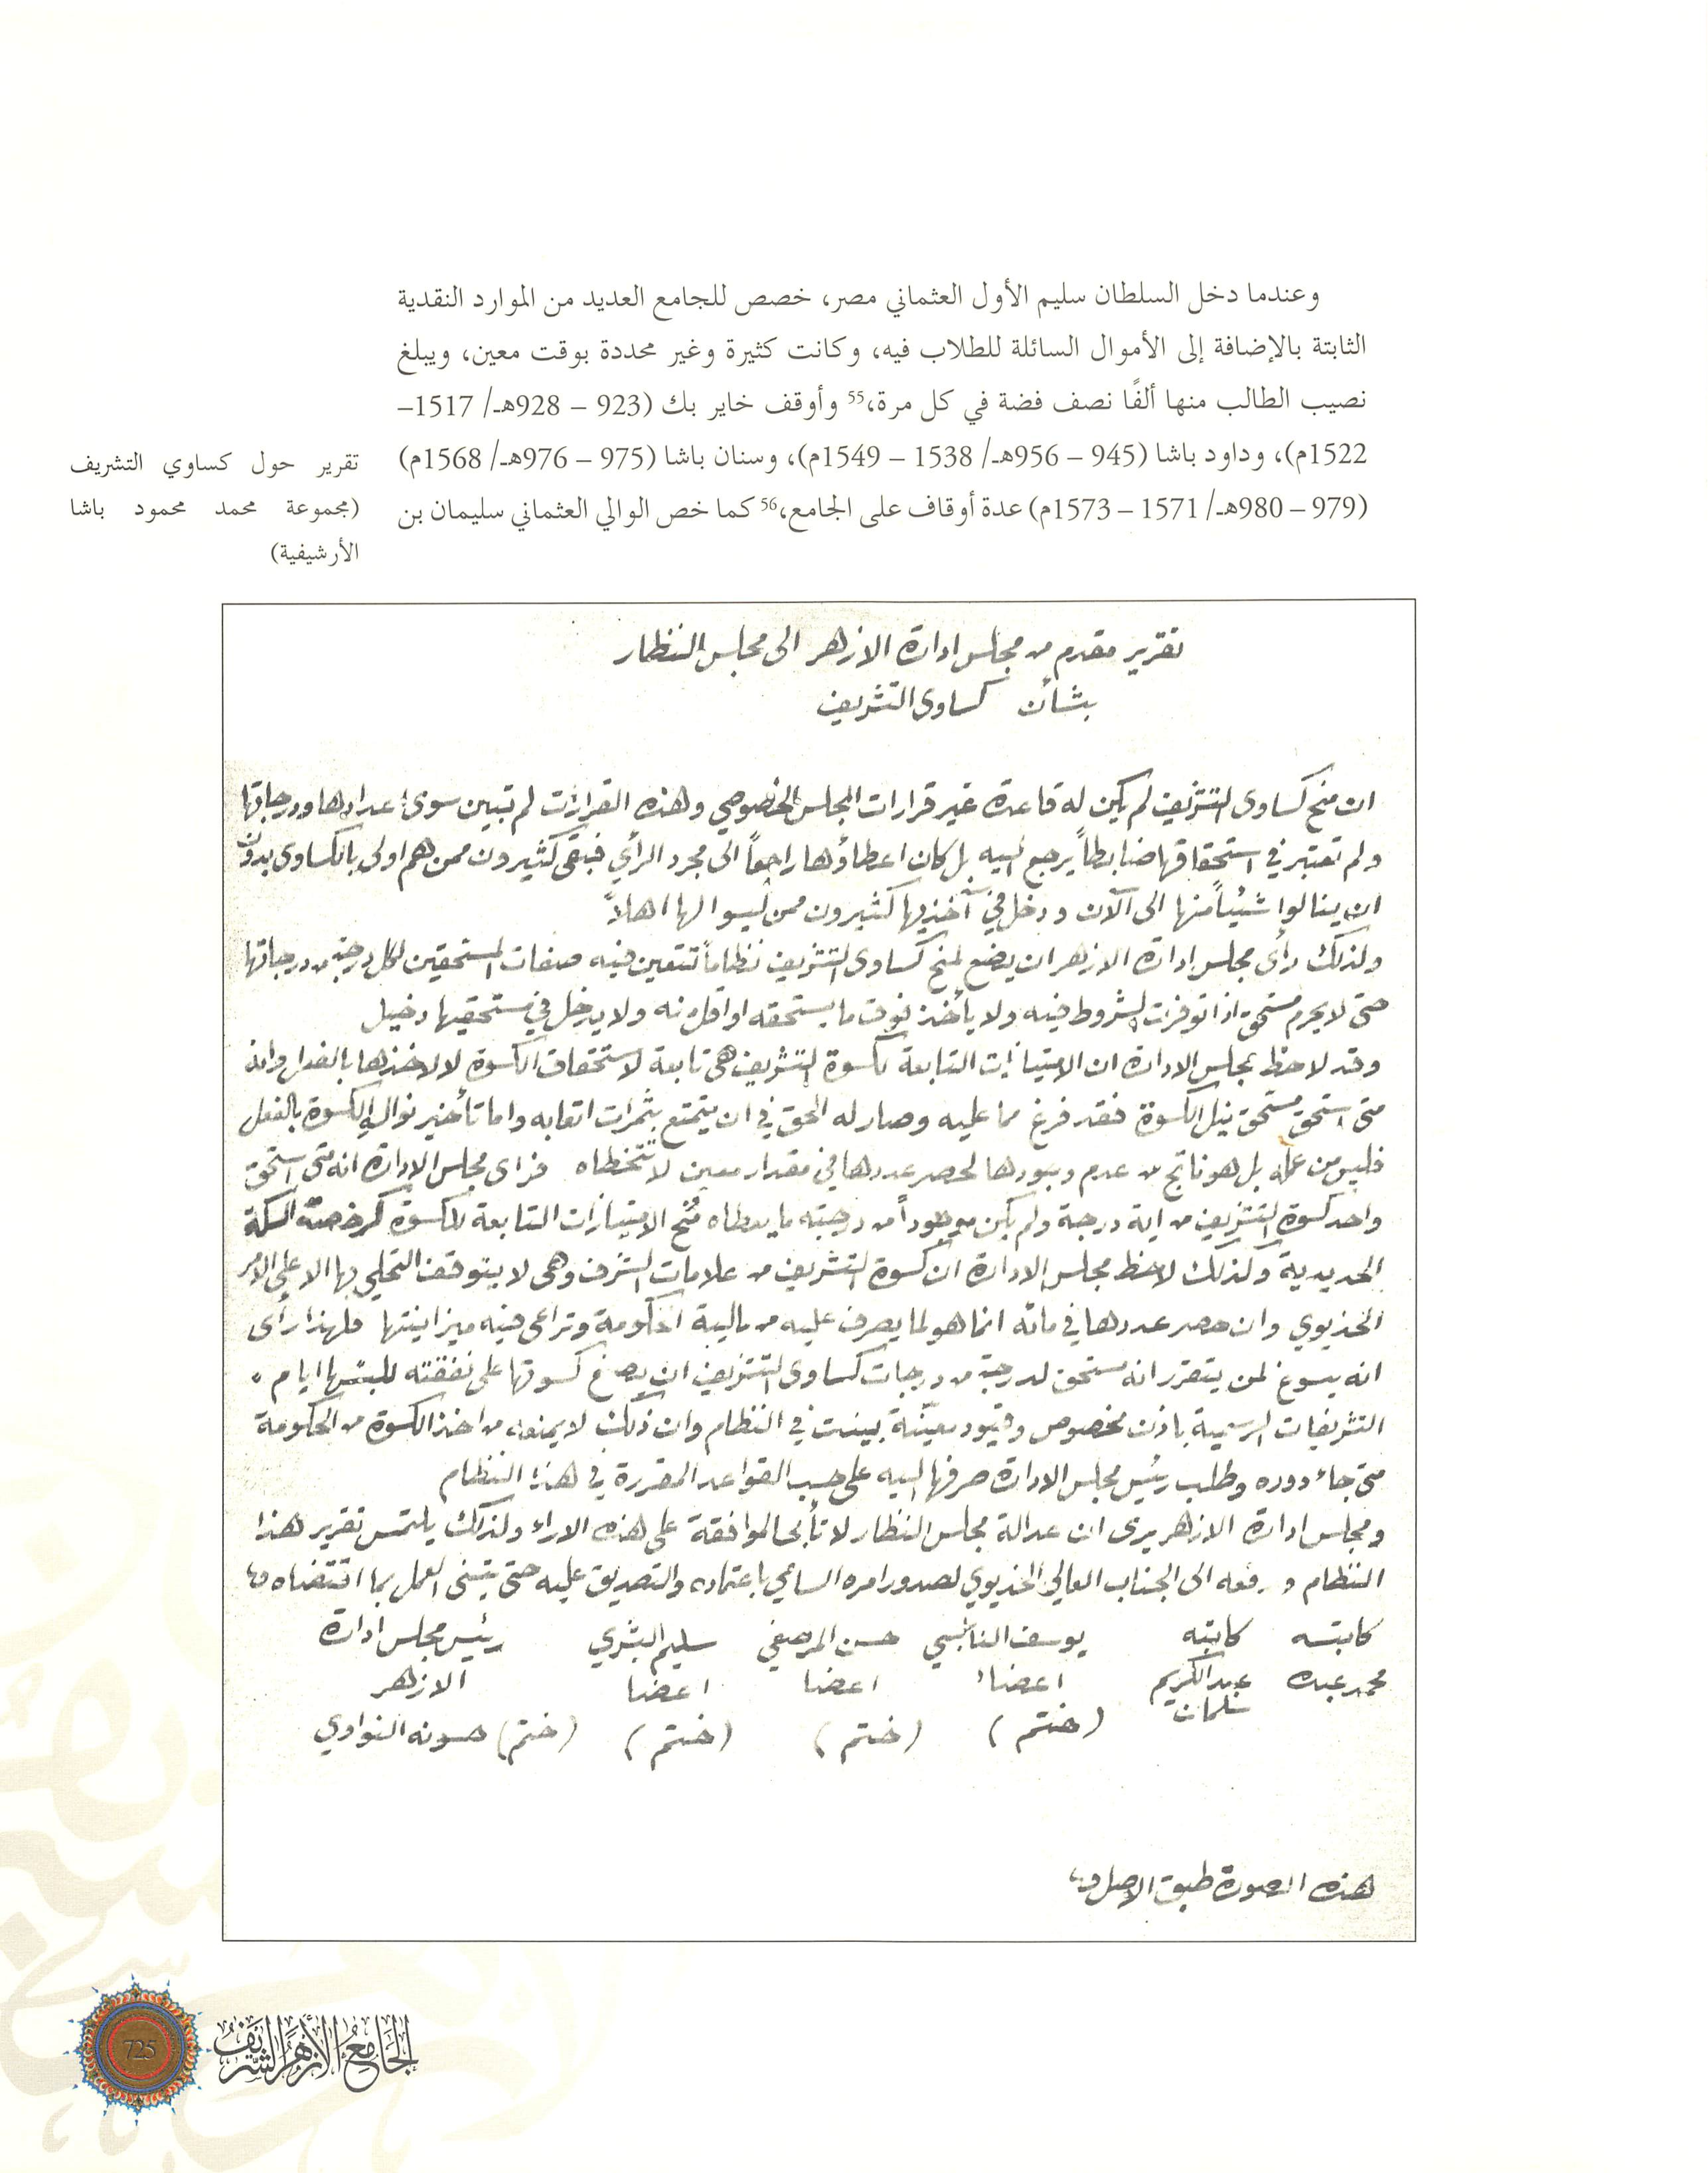 وعندما دخل السلطان سليم الأول العثماني مصر، خصص للجامع العديد من الموارد النقدية
الثابتة بالإضافة إلى الأموال السائلة للطلاب فيه، وكانت كثيرة وغير محددة بوقت معين، ويبلغ
نصيب الطالب منها ألفًا نصف فضة في كل مرة،55 وأوقف خاير بك (923 – 928هـ/ 1517–
1522م)، وداود باشا (945 – 956هـ/ 1538 – 1549م)، وسنان باشا (975 – 976هـ/ 1568م)
(979 – 980هـ/ 1571 – 1573م) عدة أوقاف على الجامع،56 كما خص الوالي العثماني سليمان بن
تقرير حول كساوي التشريف
(مجموعة محمد محمود باشا
الأرشيفية)
تقرير مقدم من مجلس ادارة الازهر الى مجلس النظار
بشأن كساوى التشريف
ان منح كساوى التشريف لم يكن له قاعدة غير قرارات المجلس الخصوصي وهذه القرارات لم تبين سوى اعدادها ودرجاتها
ولم تعتبر في استحقاقها ضابطاً يرجع اليه بل كان اعطاؤها راجعاً الى مجرد الرأي فبقى كثيرون ممن هم اولى بالكساوى بدون
ان ينالوا شيئاً منها الى الآن ودخل في آخذيها كثيرون ممن ليسوا لها اهلاً
ولذلك رأى مجلس ادارة الازهر ان يضع لمنح كساوى التشريف نظاماً تتعين فيه صفات المستحقين لكل درجة من درجاتها
حتى لا يحرم مستحق اذا توفرت الشروط فيه ولا يأخذ فوق ما يستحقه او اقل منه ولا يدخل في مستحقيها دخيل
وقد لاحظ مجلس الادارة ان الامتيازات التابعة لكسوة التشريف هى تابعة لاستحقاق الكسوة لا لاخذها بالفعل وانه
متى استحق مستحق نيل الكسوة فقد فرغ مما عليه وصار له الحق في ان يتمتع بثمرات اتعابه واما تأخير نوال الكسوة بالفعل
فليس من عمله بل هو ناتج من عدم وجودها لحصر عددها في مقدار معين لا تتخطاه فرأى مجلس الادارة انه متى استحق
واحد كسوة التشريف من اية درجة ولم يكن موجوداً من درجته ما يعطاه مُنح الامتيازات التابعة للكسوة كرخصة السكة
الحديدية وكذلك لاحظ مجلس الادارة ان كسوة التشريف من علامات الشرف وهى لا يتوقف التحلي بها الا على الامر
الخديوي وان حصر عددها في مائه انما هو لما يصرف عليه من مالية الحكومة وتراعى فيه ميزانيتها فلهذا رأى
انه يسوغ لمن يتقرر انه مستحق لدرجة من درجات كساوى التشريف ان يصنع كسوتها على نفقته للبسها ايام
التشريفات الرسمية باذن مخصوص وقيود معيّنة بينت في النظام وان ذلك لا يمنعه من اخذ الكسوة من الحكومة
متى جاء دوره وطلب رئيس مجلس الادارة صرفها اليه على حسب القواعد المقررة في هذا النظام
ومجلس ادارة الازهر يرى ان عدالة مجلس النظار لا تأبى الموافقة على هذه الاراء ولذلك يلتمس تقرير هذا
النظام ورفعه الى الجناب العالي الخديوي لصدور امره السامي باعتماده والتصديق عليه حتى يتسنى العمل بما اقتضاه
كاتبه كاتبه يوسف النابلسي حسن المرصفي سليم البشري رئيس مجلس ادارة
محمد عبده عبد الكريم سلمان اعضاء اعضا اعضا الازهر
(ختم) (ختم) (ختم) (ختم) حسونه النواوي
هذه الصورة طبق الاصل
725
الجامع الأزهر الشريف